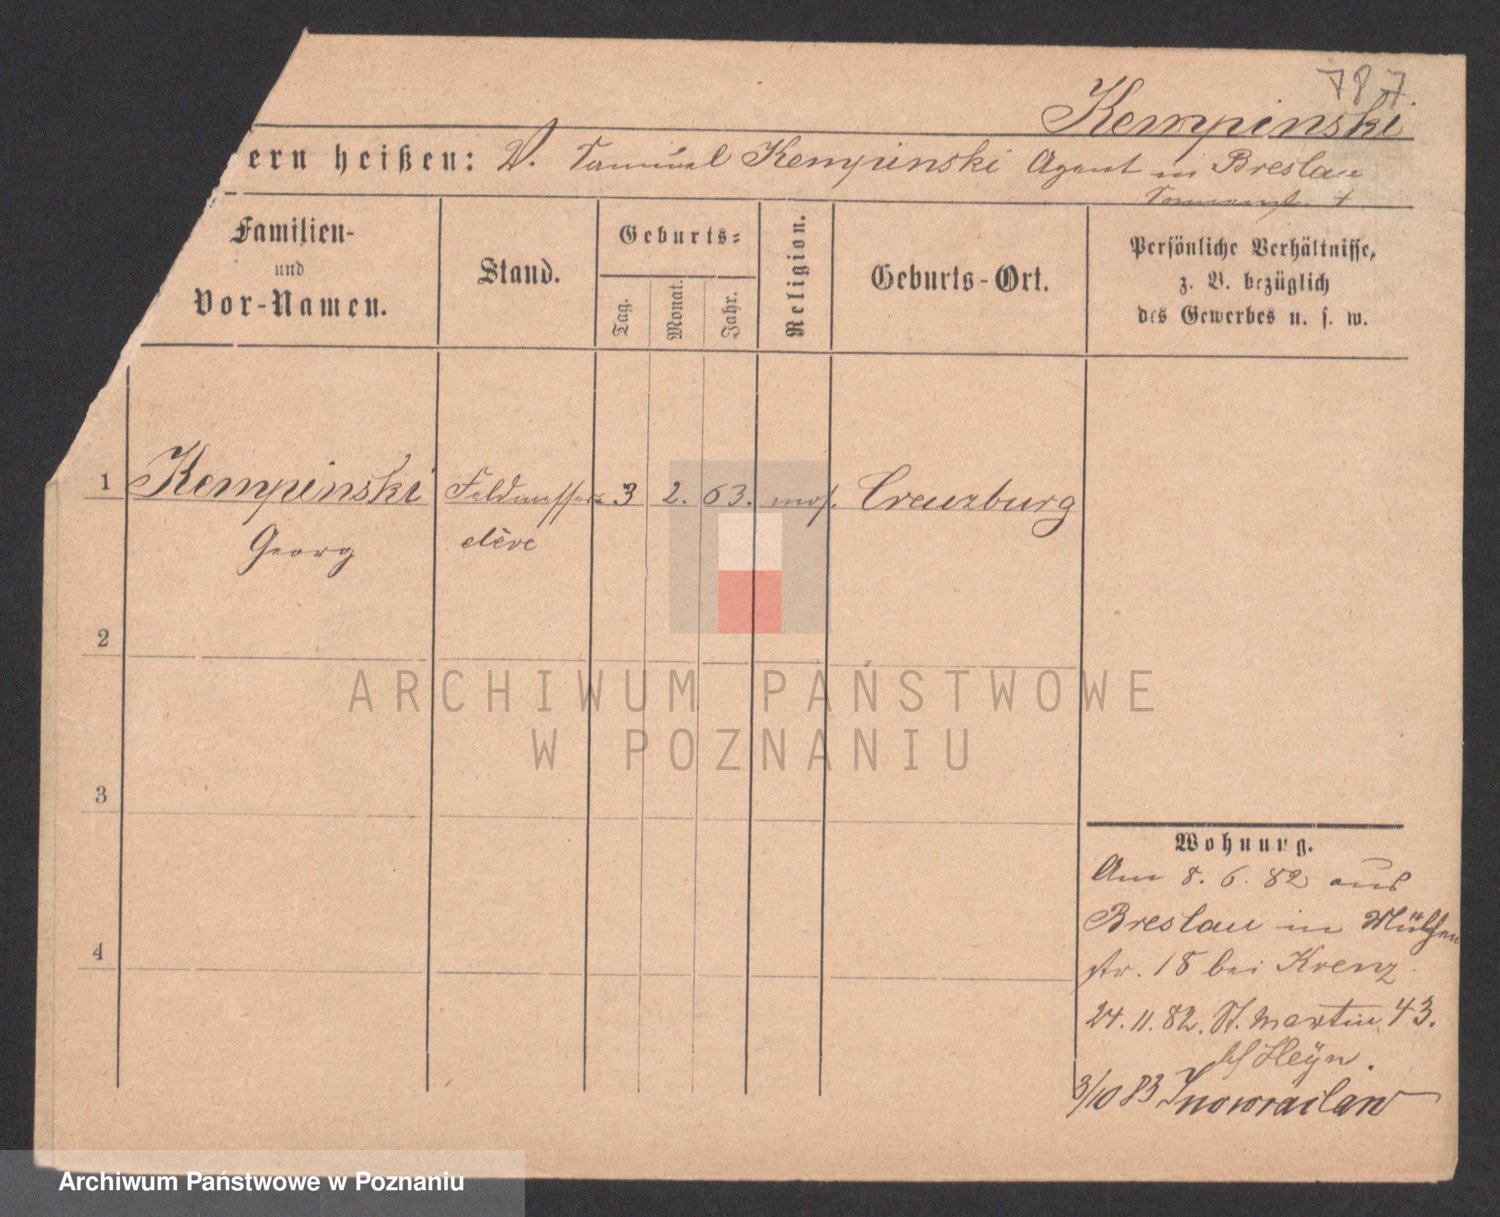 787
Kempinski
ern heißen: V. Samuel Kempinski Agent in Breslau
Familien-
und
Vor-Namen.
Stand.
Geburts-
Tag.
Monat.
Jahr.
Religion.
Geburts-Ort.
Persönliche Verhältnisse,
z. B. bezüglich
des Gewerbes u. s. w.
1 Kempinski Feldmesser 3 2. 63. mos. Creuzburg
Georg elève
2
3
4
Wohnung.
Am 8. 6. 82 aus
Breslau in Mühlen
str. 18 bei Krenz
24. 11. 82. St. Martin 43.
bei Heyn.
3/10 83 Inowraclaw
ARCHIWUM PAŃSTWOWE
W POZNANIU
Archiwum Państwowe w Poznaniu